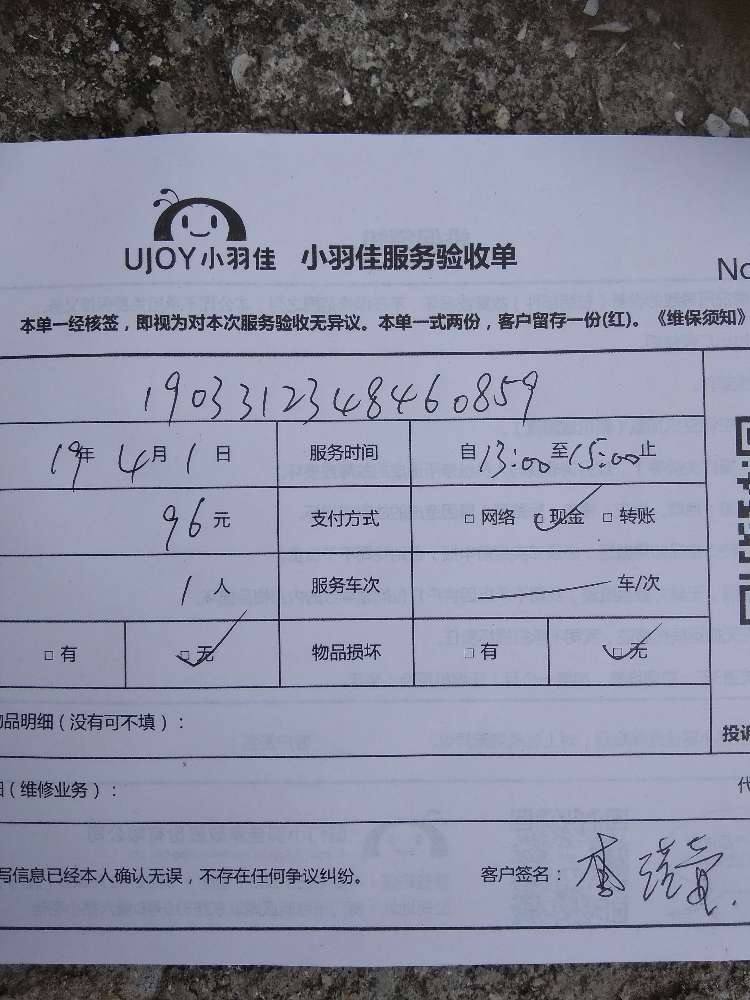 UJOY小羽佳 小羽佳服务验收单
No
本单一经核签，即视为对本次服务验收无异议。本单一式两份，客户留存一份(红)。《维保须知》
1903312348460859
19年 4月 1日 服务时间 自13:00至15:00止
96元 支付方式 □ 网络 □ 现金 □ 转账
1人 服务车次 车/次
□ 有 □ 无 物品损坏 □ 有 □ 无
品明细（没有可不填）：
投诉
（维修业务）：
代
写信息已经本人确认无误，不存在任何争议纠纷。 客户签名：李